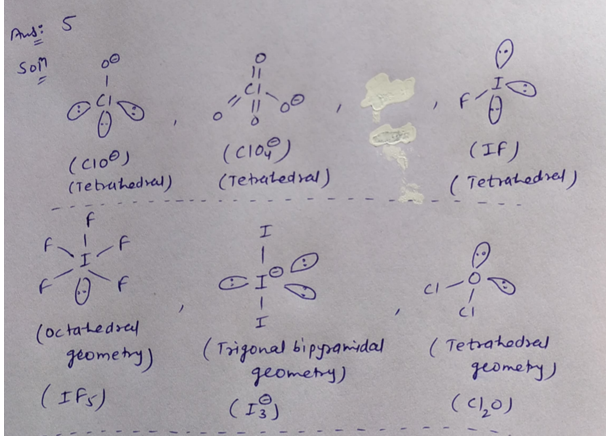 Ans: 5
Soln
O⊖
Cl
(ClO⊖)
(Tetrahedral)
,
O
Cl
O O⊖
O
(ClO4⊖)
(Tetrahedral)
,
,
F I
(IF)
(Tetrahedral)
F
F F
I
F F
(octahedral
geometry)
(IF5)
,
I
I⊖
I
(Trigonal bipyramidal
geometry)
(I3⊖)
,
Cl O
Cl
(Tetrahedral
geometry)
(Cl2O)